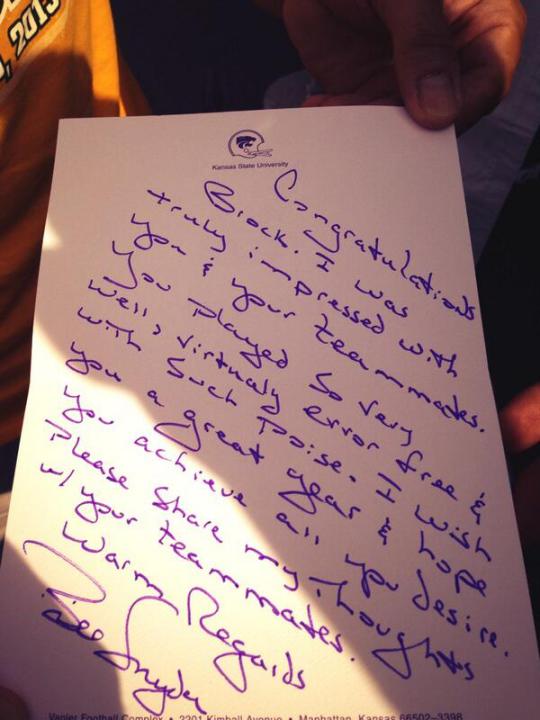 , 2013
Kansas State University
Congratulations
Brock. I was
truly impressed with
you & your teammates.
You played so very
well, virtualy error free &
with such poise. I wish
you a great year & hope
you achieve all you desire.
Please share my thoughts
w/ your teammates.
Warm Regards
Bill Snyder
Vanier Football Complex • 2201 Kimball Avenue • Manhattan, Kansas 66502-3396